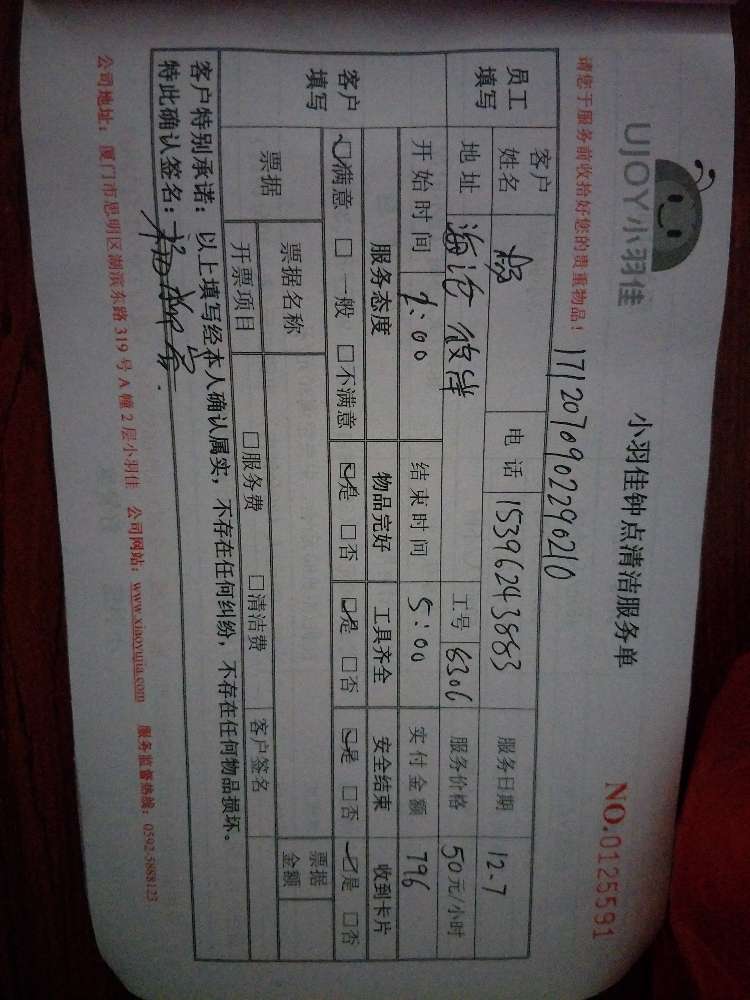 UJOY小羽佳
小羽佳钟点清洁服务单
NO.0125591
请您于服务前收拾好您的贵重物品!
1712070902290210
员工填写 客户姓名 电话 15396243883 服务日期 12.7
地址 海沧 彼岸 工号 8306 服务价格 50元/小时
开始时间 1:00 结束时间 5:00 实付金额 796
客户填写 服务态度 物品完好 工具齐全 安全结束 收到卡片
☑满意 □一般 □不满意 ☑是 □否 ☑是 □否 ☑是 □否 ☑是 □否
票据 票据名称 票据金额
开票项目 □服务费 □清洁费 客户签名
客户特别承诺:以上填写经本人确认属实,不存在任何纠纷,不存在任何物品损坏。
特此确认签名:
公司地址:厦门市思明区湖滨东路319号A幢2层小羽佳 公司网站:www.xiaoyujia.com 服务监督热线:0592-5888123